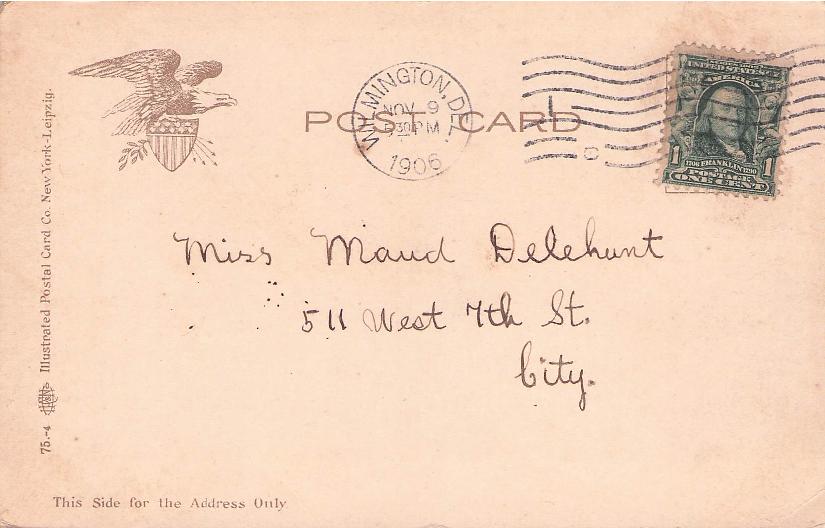 POST CARD
WILMINGTON, DEL.
NOV 9
530 PM
1906
UNITED STATES OF
AMERICA
1706 FRANKLIN 1790
POSTAGE
1 ONE CENT 1
Miss Maud Delehunt
511 West 7th St.
City.
Illustrated Postal Card Co. New York-Leipzig.
75.-4
This Side for the Address Only